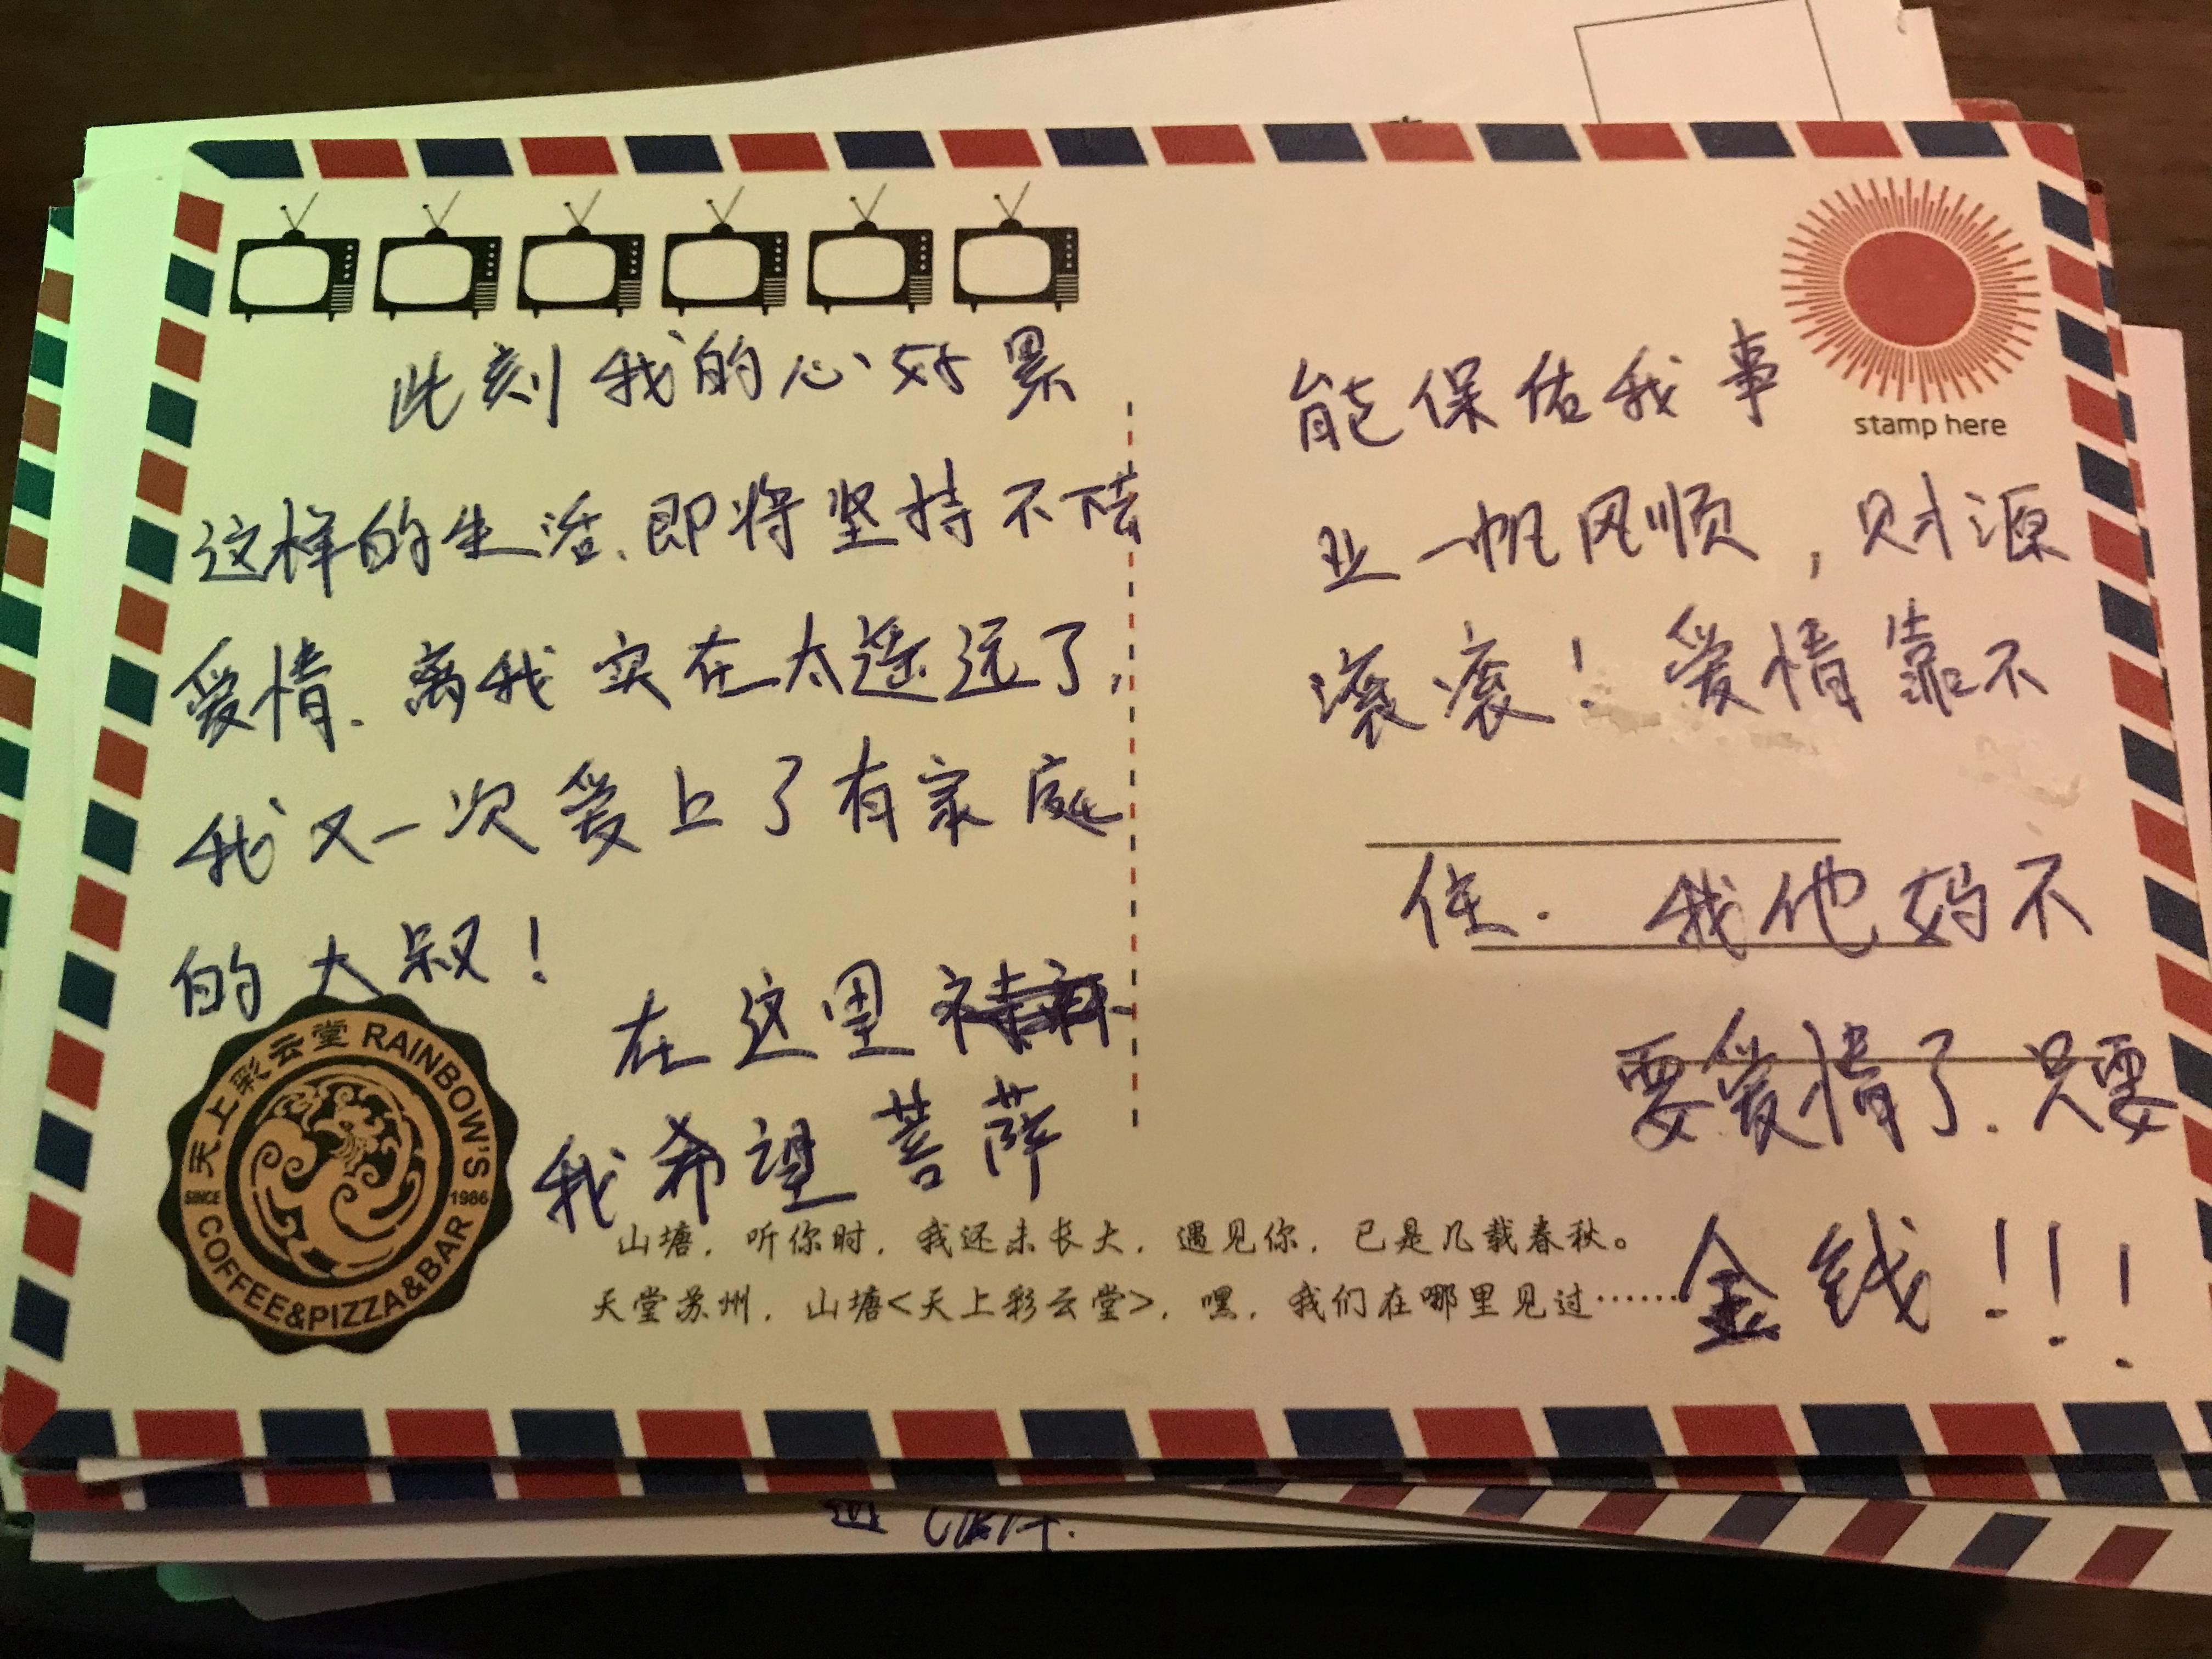 此刻我的心好累
这样的生活、即将坚持不住
爱情、离我实在太遥远了,
我又一次爱上了有家庭
的大叔!
在这里
我希望菩萨
能保佑我事
业一帆风顺,财源
滚滚!爱情靠不
住. 我他妈不
要爱情了.只要
金钱!!!
stamp here
天上彩云堂 RAINBOW'S
SINCE 1986
COFFEE&PIZZA&BAR
山塘,听你时,我还未长大,遇见你,已是几载春秋。
天堂苏州,山塘<天上彩云堂>,嘿,我们在哪里见过……